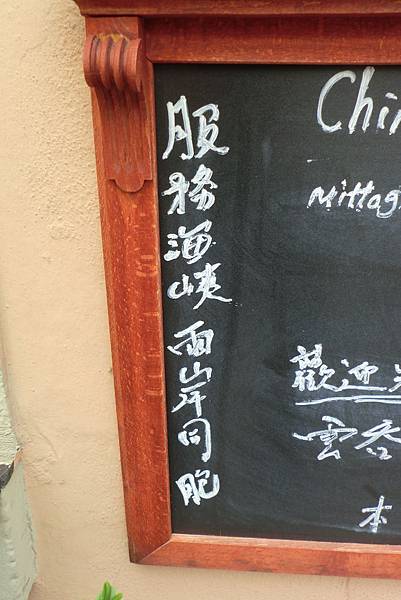 服務海峽两岸同胞
Chin
Mittag
歡迎
雲吞
本